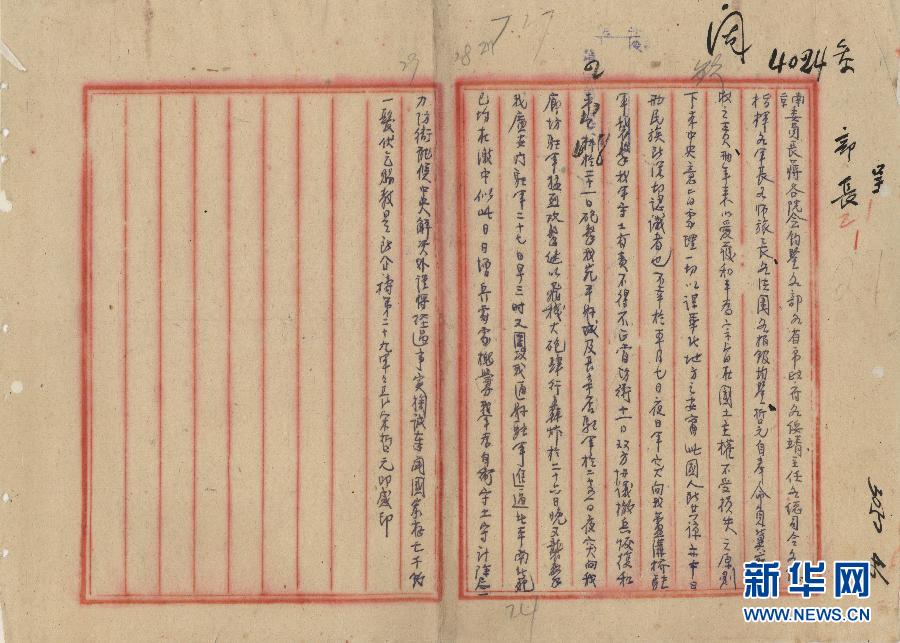 7.17
28
29
阅
4024
部長
南京
委員長蔣各院會鈞鑒各部各省市政府各綏靖主任各總司令各
指揮各軍長各師旅長各法團各報館均鑒哲元自奉命負冀
政之責兩年來以愛護和平為宗旨在國土主權不受損失之原則
下本中央意旨處理一切以謀華北地方之安甯此國人所共諒亦中日
兩民族所深切認識者也不幸於本月七日夜日軍突向我蘆溝橋駐
軍我軍守土有責不得不正當防衛十一日雙方協議撤兵恢復和
於二十一日砲擊我宛平縣城及長辛店駐軍於二十五日夜突向我
廊坊駐軍猛烈攻擊繼以飛機大砲肆行轟炸於二十六日晚又襲擊
我廣安門駐軍二十七日早三時又圍攻我通縣駐軍進逼北平南北苑
已均在激戰中似此日日增兵處處挑釁我軍為自衛守土計除盡
力防衛聽候中央解決外謹將經過事實掬誠奉聞國家存亡千鈞
一髮伏乞賜教是所企禱第二十九軍軍長宋哲元叩感印
24
新华网
WWW.NEWS.CN